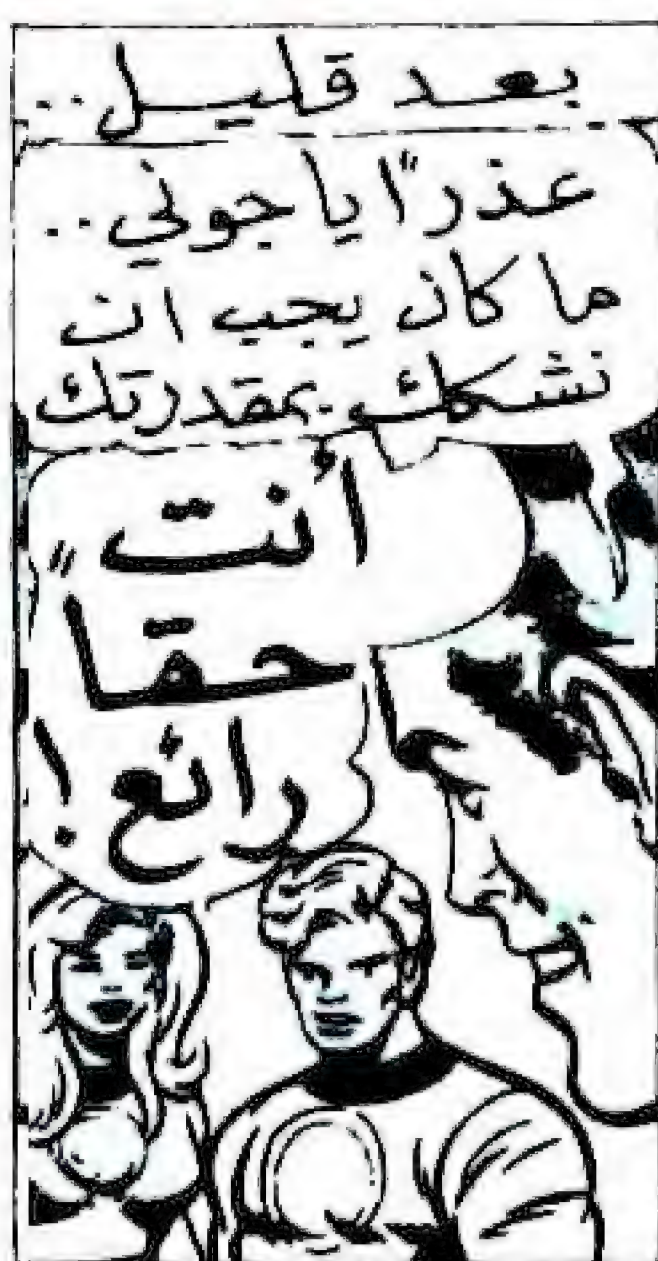 بعد قليل..
عذرًا يا جوني..
ما كان يجب ان
نشكك بمقدرتك
أنت
حقاً
رائع!